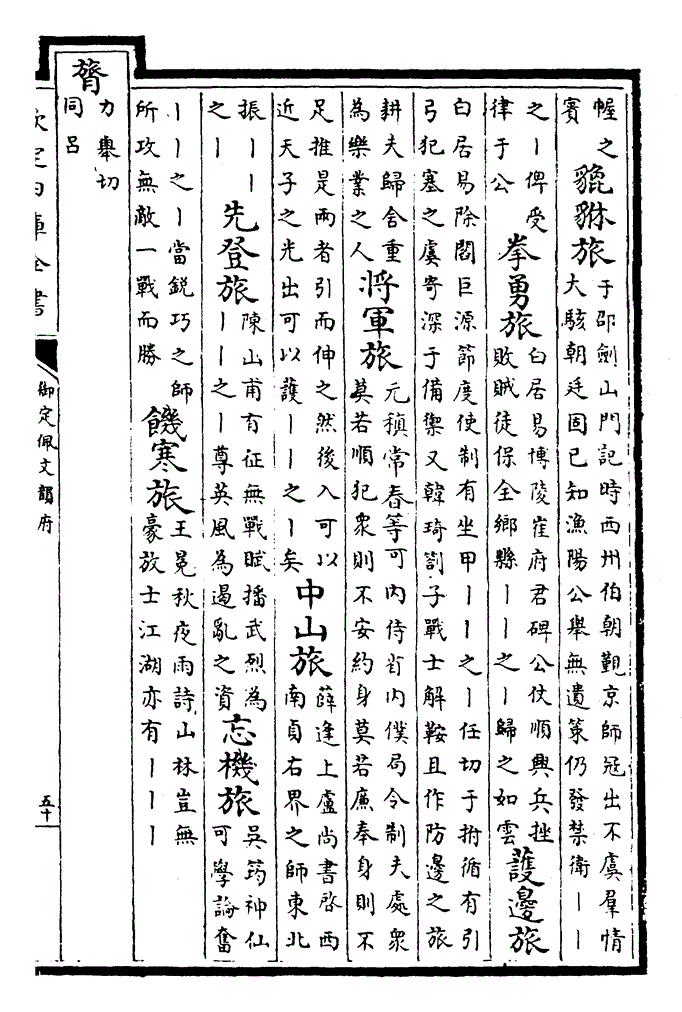 幄之
賚
貔貅旅
于邵劍山門記時西州伯朝覲京師冠出不虞羣情
大駭朝廷固已知漁陽公舉無遺策仍發禁衛丨丨
之丨俾受
律于公
拳勇旅
白居易博陵崔府君碑公仗順興兵挫
敗賊徒保全鄉縣丨丨之丨歸之如雲
護邊旅
白居易除閻巨源節度使制有坐甲丨丨之丨任切于拊循有引
弓犯塞之虞寄深于備禦又韓琦劄子戰士解鞍且作防邊之旅
耕夫歸舍重
為樂業之人
將軍旅
元稹常春等可内侍省内僕局令制夫處衆
莫若順犯衆則不安約身莫若廉奉身則不
足推是兩者引而伸之然後入可以
近天子之光出可以護丨丨之丨矣
中山旅
薛逢上盧尚書啓西
南貞右界之師東北
振丨丨
之丨
先登旅
陳山甫有征無戰賦播武烈為
丨丨之丨尊英風為遏亂之資
忘機旅
吳筠神仙
可學論奮
丨丨之丨當鋭巧之師
所攻無敵一戰而勝
饑寒旅
王冕秋夜雨詩山林豈無
豪放士江湖亦有丨丨丨
膂
力舉切
同呂
欽定四庫全書
御定佩文韻府
五十